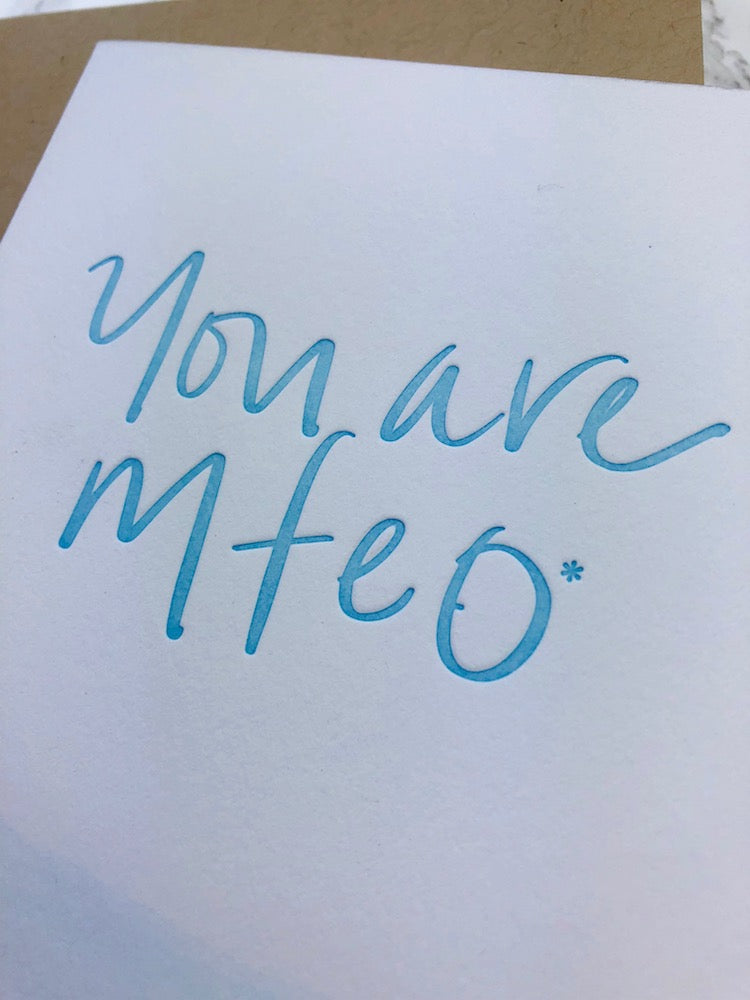 You are
mfeo*